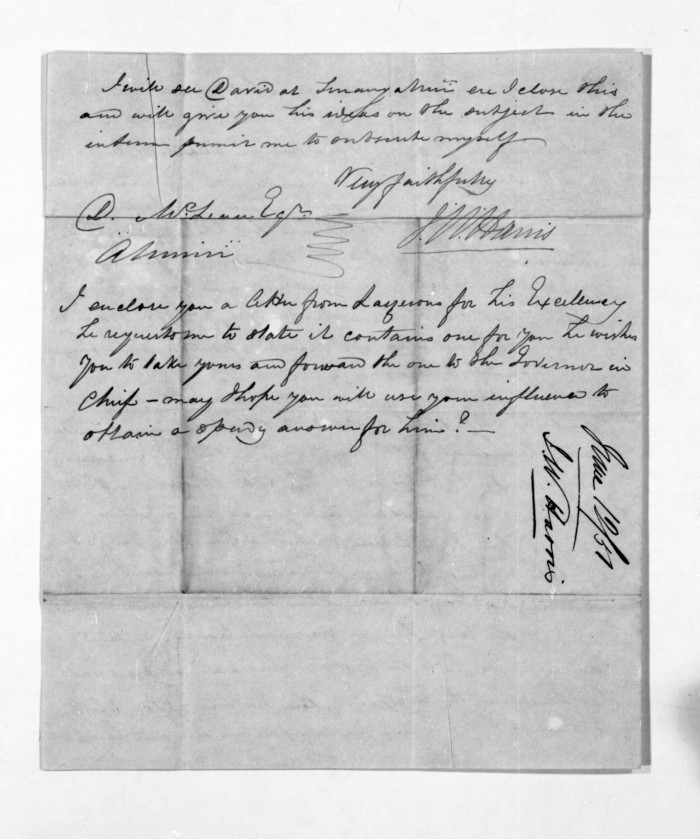 I will see David at Tmangatuiti ere I close this
and will give you his ideas on the subject in the
interim permit me to subscribe myself
Very faithfully
D. McLean Esqre
J. W. Harris
Ahuriri
I enclose you a letter from Lazerous for His Excellency
he requests me to state it contains one for you he wishes
you to take yours and forward the one to the Governor in
Chief – may I hope you will use your influence to
obtain a speedy answer for him? –
June 19/51
J. W. Harris